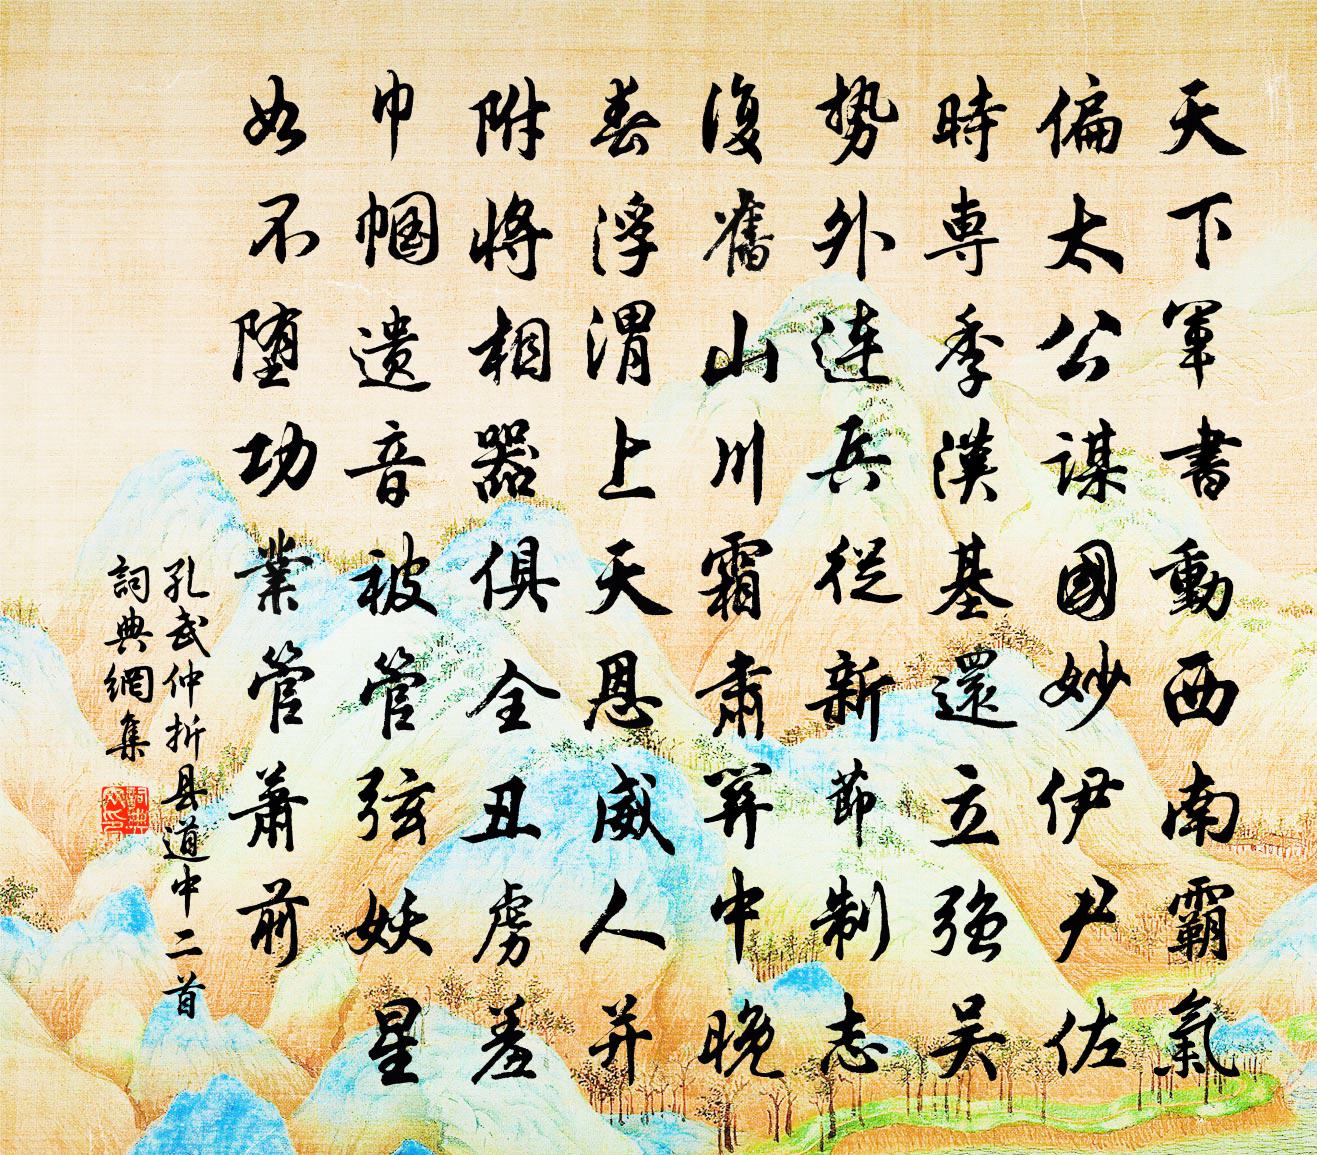 天下軍書動西南霸氣
偏太公謀國妙伊尹佐
時専季漢基還立強吴
勢外連兵從新節制志
復舊山川霜肅關中晚
春浮渭上天恩威人并
附將相器俱全丑虜羞
巾幗遺音被管弦妖星
如不墮功業管蕭前
孔武仲折县道中二首
詞典網集